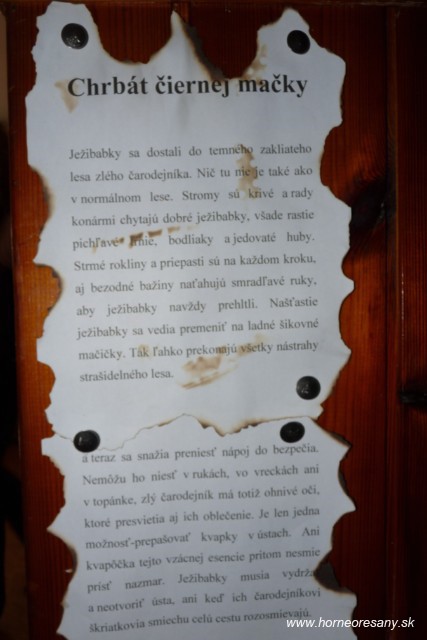 Chrbát čiernej mačky
Ježibabky sa dostali do temného zakliateho
lesa zlého čarodejníka. Nič tu nie je také ako
v normálnom lese. Stromy sú krivé a rady
konármi chytajú dobré ježibabky, všade rastie
pichľavé tŕnie, bodliaky a jedovaté huby.
Strmé rokliny a priepasti sú na každom kroku,
aj bezodné bažiny naťahujú smradľavé ruky,
aby ježibabky navždy prehltli. Našťastie
ježibabky sa vedia premeniť na ladné šikovné
mačičky. Tak ľahko prekonajú všetky nástrahy
strašidelného lesa.
a teraz sa snažia preniesť nápoj do bezpečia.
Nemôžu ho niesť v rukách, vo vreckách ani
v topánke, zlý čarodejník má totiž ohnivé oči,
ktoré presvietia aj ich oblečenie. Je len jedna
možnosť-prepašovať kvapky v ústach. Ani
kvapôčka tejto vzácnej esencie pritom nesmie
prísť nazmar. Ježibabky musia vydržať
a neotvoriť ústa, ani keď ich čarodejníkovi
škriatkovia smiechu celú cestu rozosmievajú.
www.horneoresany.sk